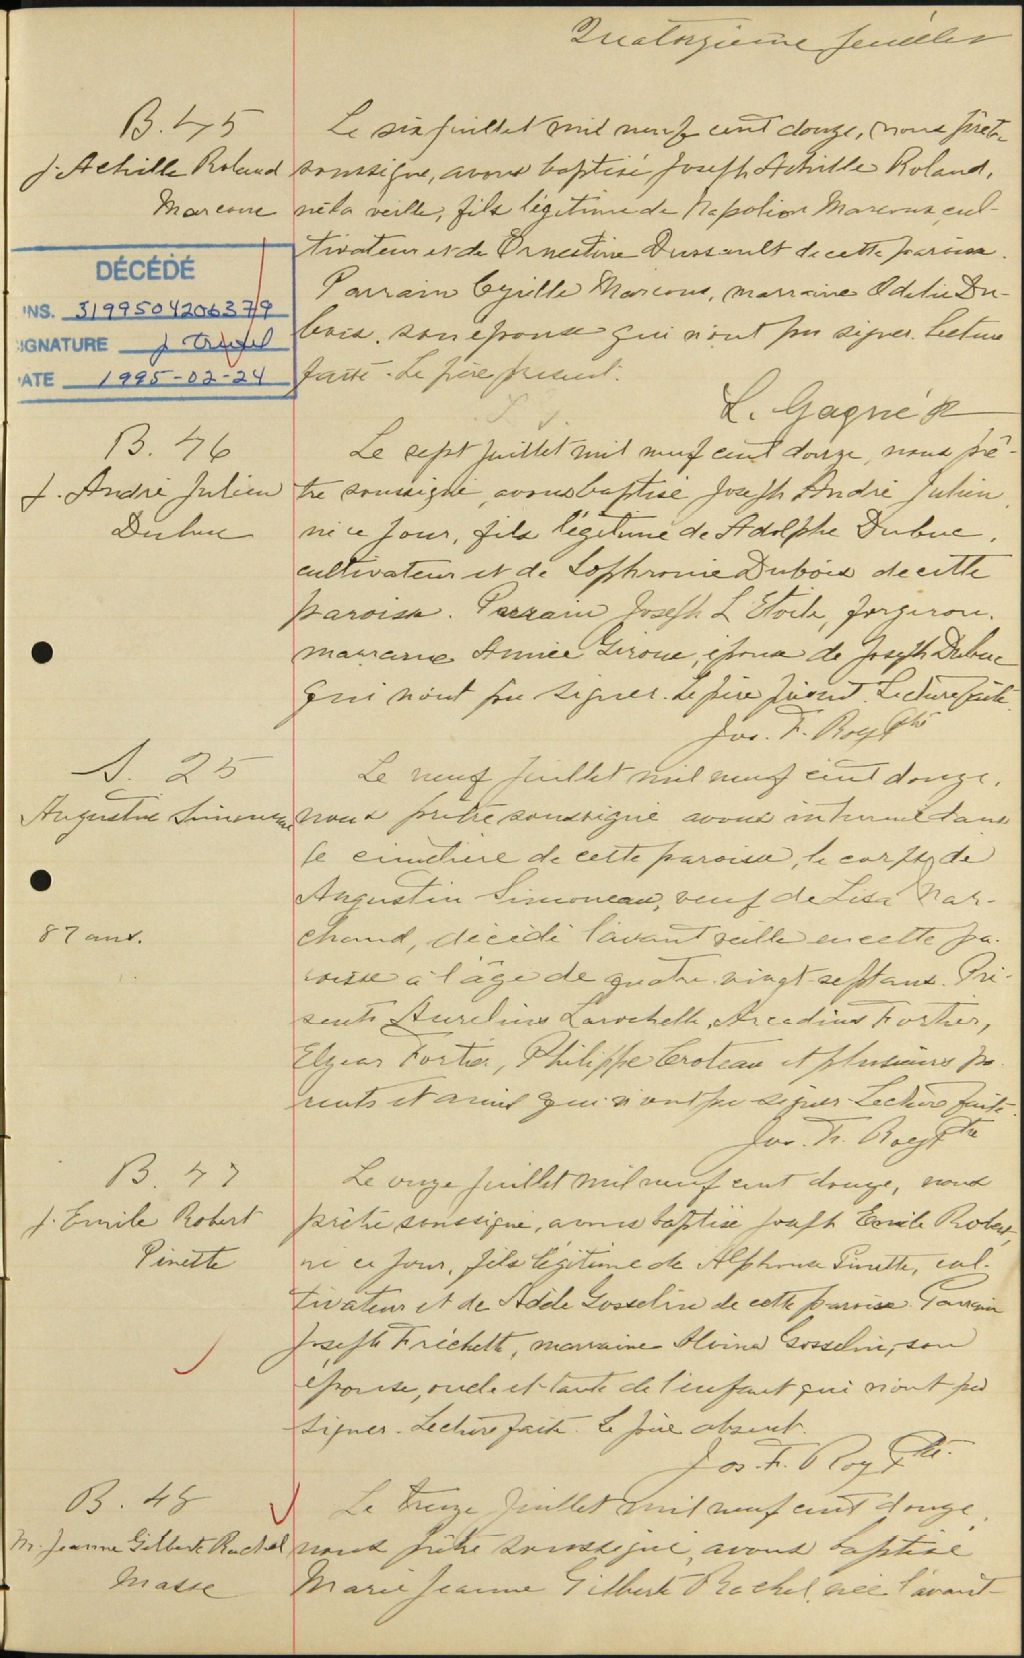 Quatorzième feuillet
B. 45
J. Achille Roland
Marcoux
Le six juillet mil neuf cent douze, nous prêtre
soussigné, avons baptisé Joseph Achille Roland,
né la veille, fils légitime de Napoléon Marcoux, cul-
tivateur et de Ernestine Dussault de cette paroisse.
Parrain Cyrille Marcoux, marraine Odélie Du-
bois, son épouse qui n'ont pu signer. Lecture
faite. Le père présent.
L. Gagné
DÉCÉDÉ
INS. 3199504206379
SIGNATURE
DATE 1995-02-24
B. 46
J. André Julien
Dubuc
Le sept juillet mil neuf cent douze, nous prê-
tre soussigné, avons baptisé Joseph André Julien,
né ce jour, fils légitime de Adolphe Dubuc,
cultivateur et de Sophronie Dubois de cette
paroisse. Parrain Joseph L'Etoile, forgeron,
marraine Aimée Giroux, épouse de Joseph Dubuc
qui n'ont pu signer. Le père présent. Lecture faite.
Jos. F. Roy Ptre
S. 25
Augustin Simoneau
87 ans.
Le neuf juillet mil neuf cent douze,
nous prêtre soussigné avons inhumé dans
le cimetière de cette paroisse, le corps de
Augustin Simoneau, veuf de Lisa Mar-
chand, décédé l'avant veille en cette pa-
roisse à l'âge de quatre-vingt-sept ans. Pré-
sents Aurélius Larochelle, Arcadius Fortier,
Elzéar Fortier, Philippe Croteau et plusieurs pa-
rents et amis qui n'ont pu signer. Lecture faite.
Jos. F. Roy Ptre
B. 47
J. Emile Robert
Pinette
Le onze juillet mil neuf cent douze, nous
prêtre soussigné, avons baptisé Joseph Emile Robert,
né ce jour, fils légitime de Alphonse Pinette, cul-
tivateur et de Adèle Gosselin de cette paroisse. Parrain
Joseph Fréchette, marraine Alvina Gosselin, son
épouse, oncle et tante de l'enfant qui n'ont pu
signer. Lecture faite. Le père absent.
Jos. F. Roy Ptre.
B. 48
M. Jeanne Gilberte Rachel
Masse
Le treize juillet mil neuf cent douze,
nous prêtre soussigné, avons baptisé
Marie Jeanne Gilberte Rachel, née l'avant-